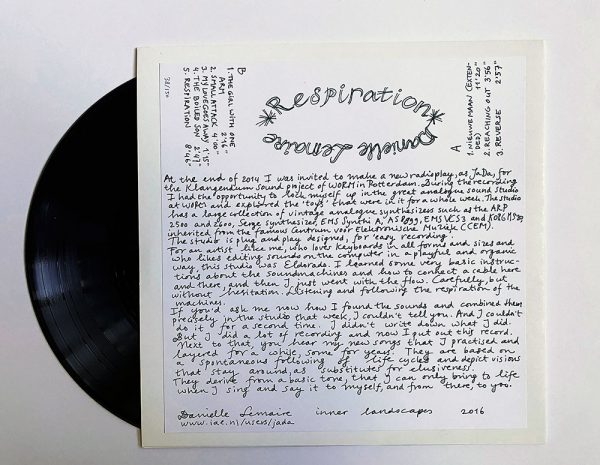 *Respiration*
Danielle Lemaire
A
1. NIEUWE MAAN (EXTEN-
DED) 11'20"
2. REACHING OUT 3'56"
3. REVERSE 2'57"
B
1. THE GIRL WITH ONE
ARM 2'16"
2. SMALL ATTACK 4'00"
3. MY LOVE GOES AWAY 1'15"
4. THE BOILED SON 2'47"
5. RESPIRATION 8'46"
At the end of 2014 I was invited to make a new radioplay, as JaDa, for
the Klangendum sound project of WORM in Rotterdam. During the recording
I had the opportunity to lock myself up in the great analogue sound studio
at WORM and explored the 'toys' that were in it for a whole week. The studio
has a large collection of vintage analogue synthesizers such as the ARP
2500 and 2600, Serge synthesizer, EMS Synthi A, EMS VCS3 and KORG MS20,
inherited from the famous Centrum voor Elektronische Muziek (CEM).
The studio is plug and play designed, for 'easy recording'.
For an artist like me, who loves keyboards in all forms and sizes and
who likes editing sounds on the computer in a playful and organic
way, this studio was Eldorado. I learned some very basic instruc-
tions about the soundmachines and how to connect a cable here
and there, and then I just went with the flow. Carefully, but
without hesitation. Listening and following the respiration of the
machines.
If you'd ask me now how I found the sounds and combined them
precisely in the studio that week, I couldn't tell you. And I couldn't
do it for a second time. I didn't write down what I did.
But I did a lot of recording and now I put out this record.
Next to that, you hear my new songs that I practised and
layered for a while, some for years. They are based on
a spontaneous following of life cycles and depict visions
that stay around, as substitutes for elusiveness.
They derive from a basic tone, that I can only bring to life
when I sing and say it to myself, and from there, to you.
Danielle Lemaire inner landscapes 2016
www.iae.nl/users/jada